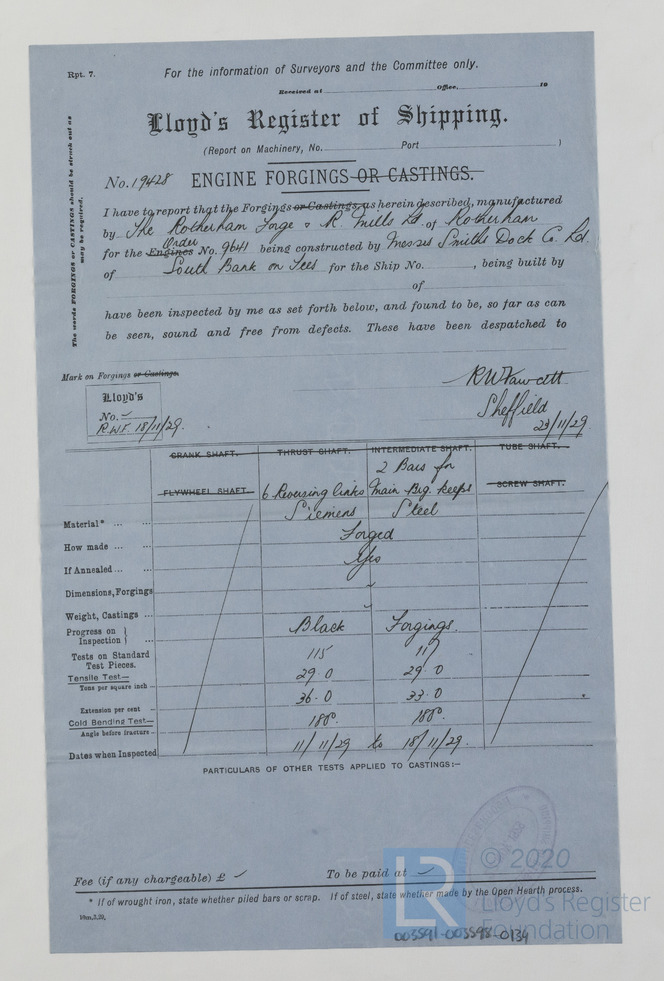 Rpt. 7.
For the information of Surveyors and the Committee only.
Received at Office, 19
Lloyd's Register of Shipping.
(Report on Machinery, No. Port )
No. 19428 ENGINE FORGINGS OR CASTINGS.
The words FORGINGS or CASTINGS should be struck out as may be required.
I have to report that the Forgings or Castings, as herein described, manufactured
by The Rotherham Forge & R. Mills Ld. of Rotherham
for the Engines Order No. 9641 being constructed by Messrs Smiths Dock Co. Ld.
of South Bank on Tees for the Ship No. , being built by
of
have been inspected by me as set forth below, and found to be, so far as can
be seen, sound and free from defects. These have been despatched to
Mark on Forgings or Castings.
Lloyd's
No.
R.W.F. 18/11/29.
R W Fawcett
Sheffield
23/11/29
CRANK SHAFT. THRUST SHAFT. INTERMEDIATE SHAFT. TUBE SHAFT.
2 Bars for
FLYWHEEL SHAFT. 6 Reversing links Main Brg. keeps SCREW SHAFT.
Material* ... ... Siemens Steel
How made ... ... Forged
If Annealed ... ... Yes
Dimensions, Forgings
Weight, Castings ...
Progress on Inspection ... Black Forgings.
Tests on Standard Test Pieces. 115 117
Tensile Test—
Tons per square inch 29.0 29.0
Extension per cent 36.0 33.0
Cold Bending Test—
Angle before fracture 180°. 180°.
Dates when Inspected 11/11/29 to 18/11/29.
PARTICULARS OF OTHER TESTS APPLIED TO CASTINGS:—
Fee (if any chargeable) £ To be paid at
* If of wrought iron, state whether piled bars or scrap. If of steel, state whether made by the Open Hearth process.
LR
© 2020
Lloyd's Register
Foundation
003591-003598-0134